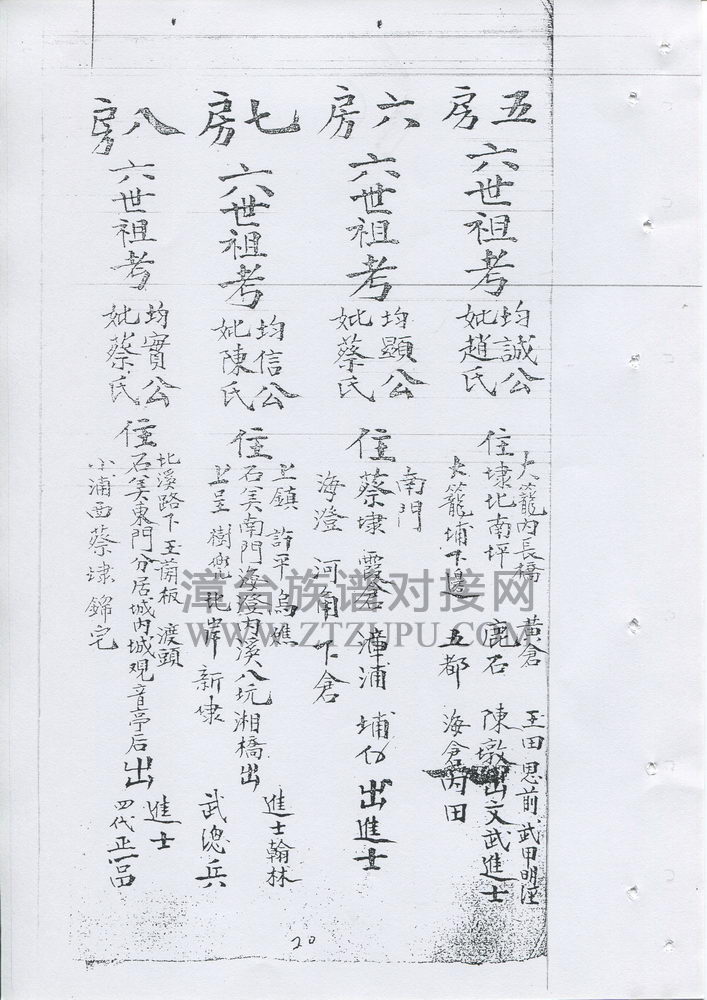 五房
六世祖考
均誠公
妣趙氏
住
大籠內長橋 黃倉 玉田 恩前 武甲明涇
埭北南坪 鹿石 陳墩 出文武進士
大籠埔下邊 五都 海倉內田
六房
六世祖考
均顯公
妣蔡氏
南門
住蔡埭 霞倉 漳浦 埔仂 出進士
海澄 河南 下倉
七房
六世祖考
均信公
妣陳氏
住
上鎮 許平 烏礁 進士翰林
石美南門 海澄內溪 八坑 湘橋 出
上呈 樹兜 北岸 新埭 武總兵
八房
六世祖考
均實公
妣蔡氏
住
北溪路下 王前板 渡頭 進士
石美東門分居城內城观音亭后 出
小浦西蔡埭錦宅 四代正一品
漳台族谱对接网
WWW.ZTZUPU.COM
20